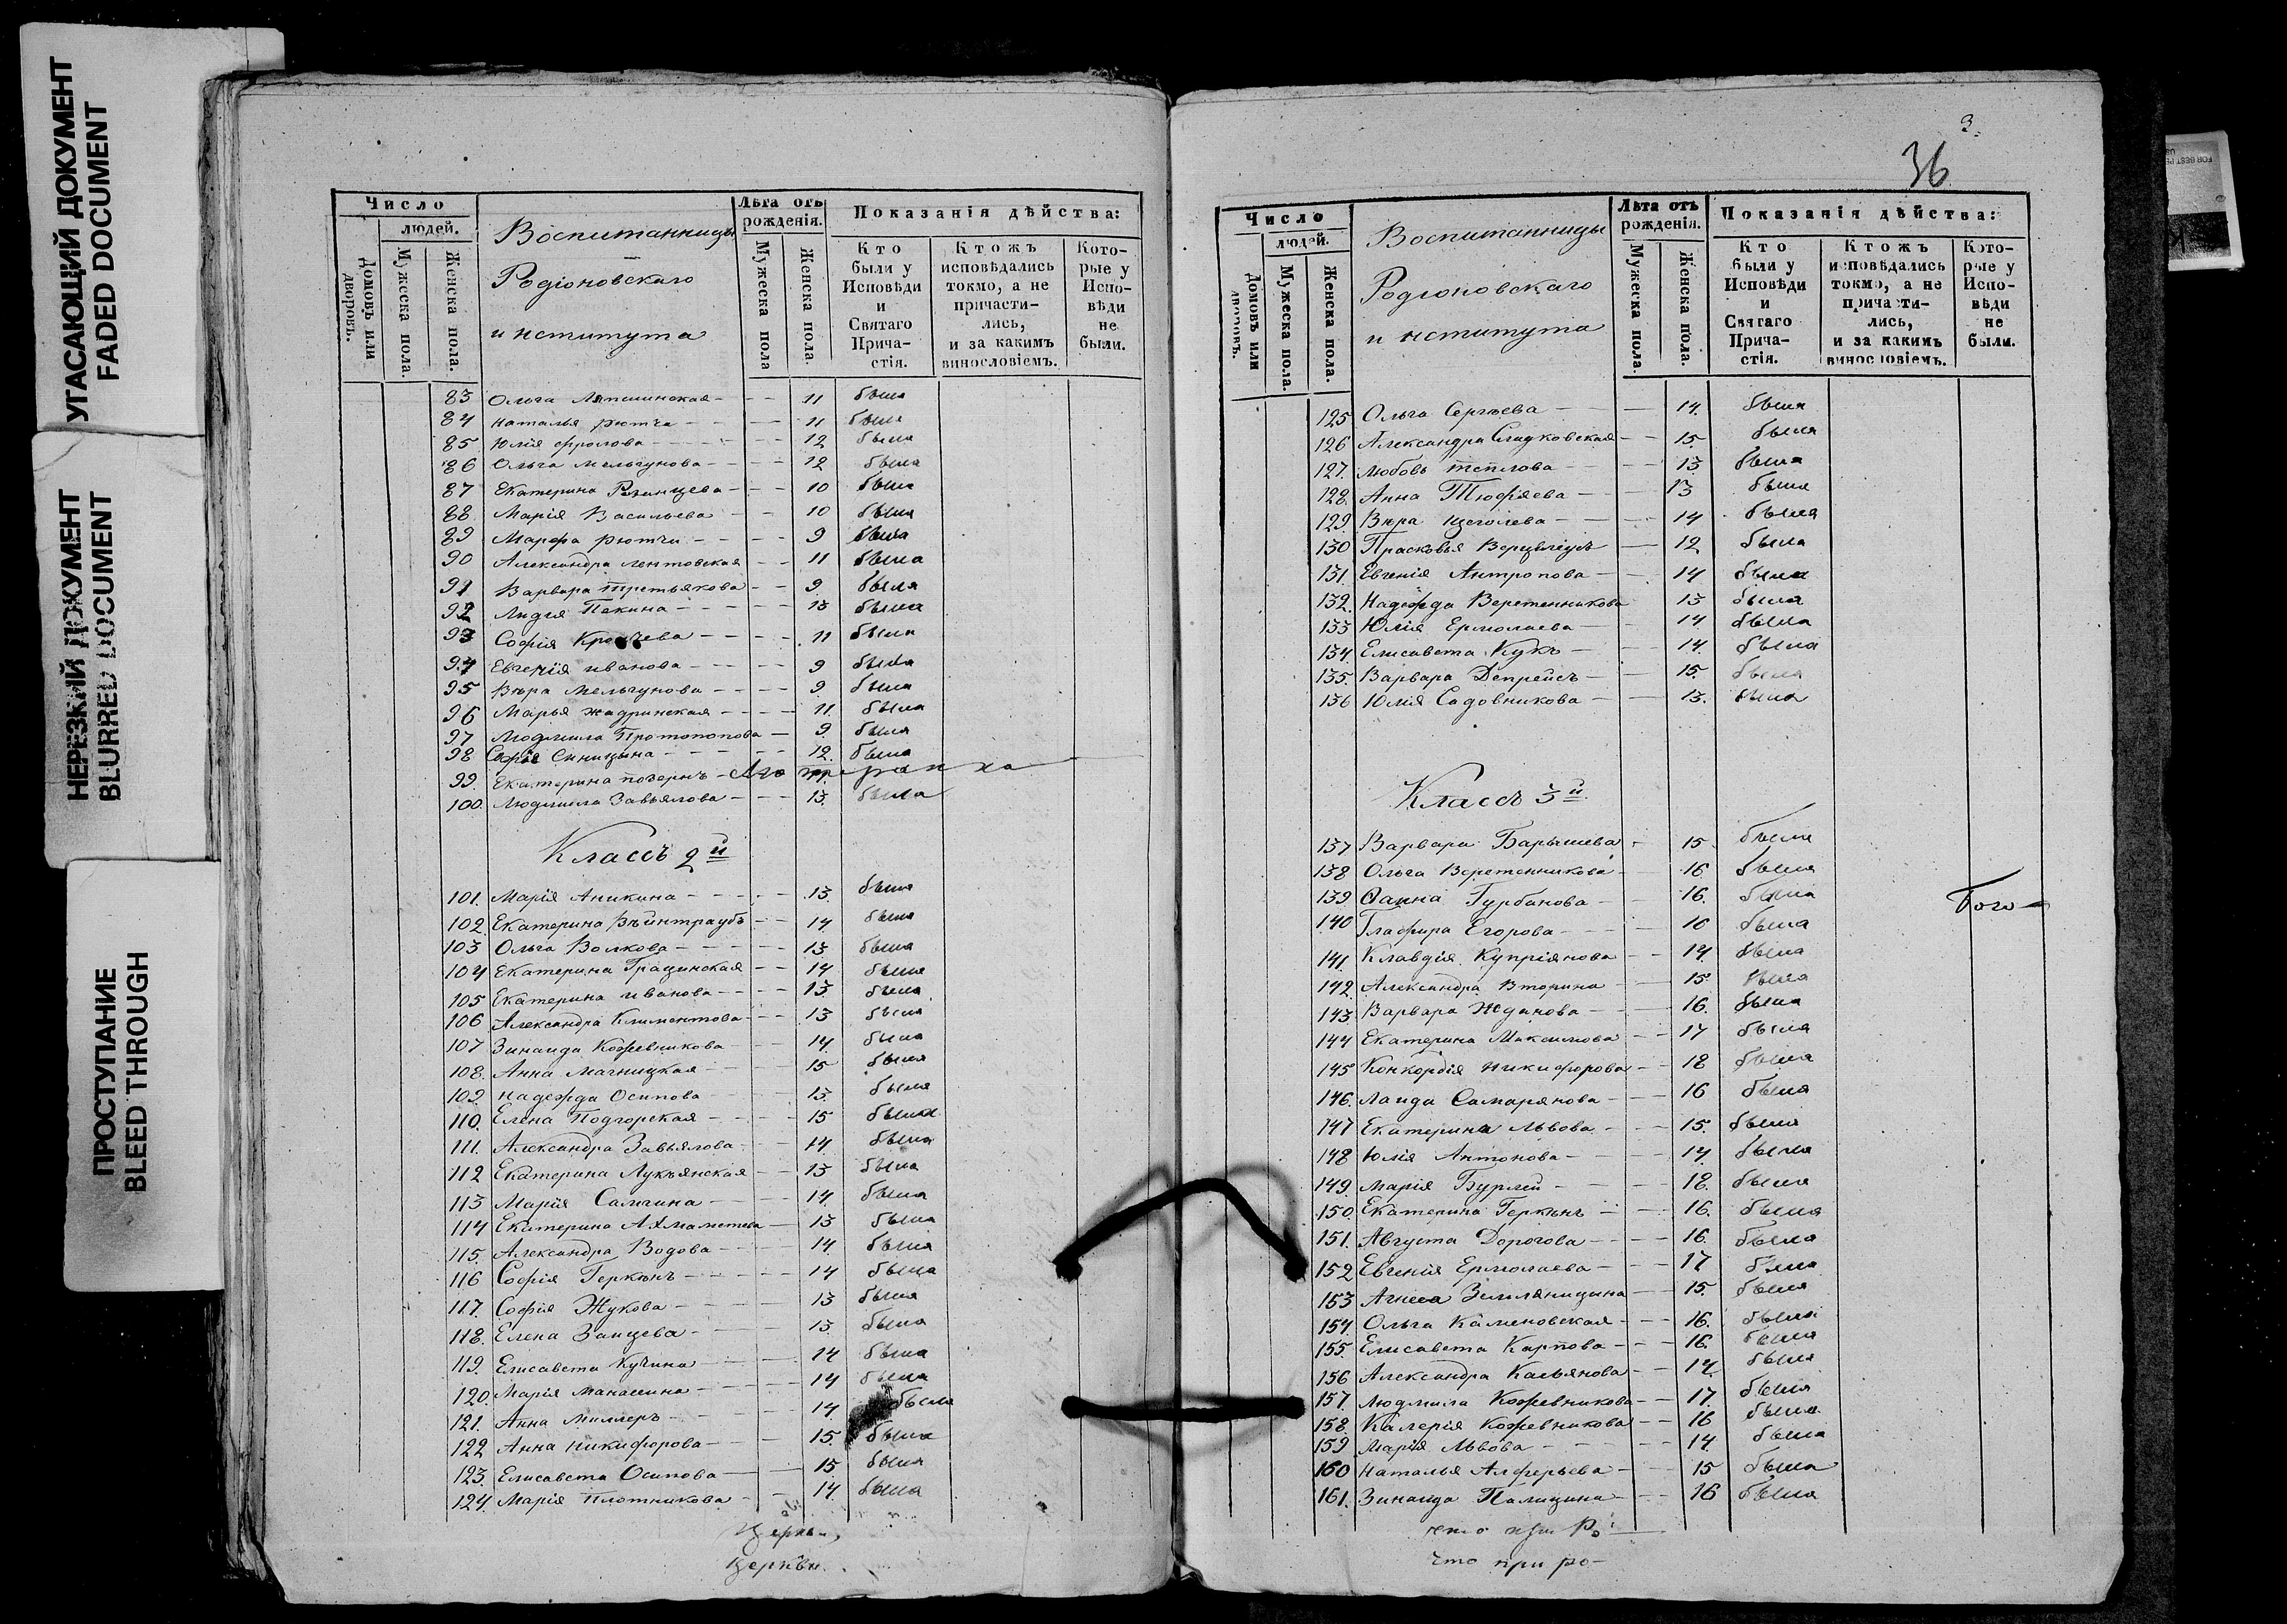 УГАСАЮЩИЙ ДОКУМЕНТ
FADED DOCUMENT
НЕРЕЗКИЙ ДОКУМЕНТ
BLURRED DOCUMENT
ПРОСТУПАНИЕ
BLEED THROUGH
Число
людей.
Домовъ или дворовъ.
Мужеска пола.
Женска пола.
Воспитанницы
Родіоновскаго
института
Лѣта отъ рожденія.
Мужеска пола
Женска пола.
Показанія дѣйства:
Кто были у Исповѣди и Святаго Прича-стія.
Ктожъ исповѣдались токмо, а не причасти-лись, и за какимъ винословіемъ.
Кото-рые у Испо-вѣди не были.
83 Ольга Ляпшинская - - - 11 была
84 Наталья Рютчи - - - 11 была
85. Юлія Фролова - - - 12 была
86 Ольга Мельгунова - - - 12 была
87 Екатерина - - - 10 была
88 Марія Васильева - - 10 была
89 Марфа Рютчи - - - 9 была
90 Александра Лентовская - - 11 была
91 Варвара Третьякова - - 9. была
92 Лидія Пекина - - - 13 была
93 Софія - - - 11 была
94 Евгенія Иванова - - - 9 была
95 Вѣра Мельгунова - - - 9. была
96 Марья Жадринская - - - 11. была
97 Людмила Протопопова - 9 была
98 Софія Синицына - - - 12. была
99. Екатерина - Лютеранка
100. Людмила Завьялова - - - 13. была
Классъ 2й
101. Марія Аникина - - - 13. была
102. Екатерина Вѣйнтраубъ - - 14 была
103 Ольга Волкова - - - 13 была
104 Екатерина Грацинская - - 14 была
105 Екатерина Иванова - - - 13 была
106 Александра Климентова - - 13 была
107 Зинаида Кожевникова - - 14. была
108. Анна Магницкая - - - 15 была
109 Надежда Осипова - - 13. была
110. Елена Подгорская - - - 15 была
111. Александра Завьялова - - 14. была
112 Екатерина Лукьянская - - 13 была
113 Марія Салтина - - - 14. была
114 Екатерина Ахматова - 13 была
115. Александра Водова - - - 14. была
116 Софія Геркенъ - - - 14 была
117. Софія Жукова - - - 13 была
118. Елена Заицева - - - 13. была
119. Елисавета Кучина - - 14 была
120. Марія Манасеина - - 14 была
121. Анна Миллеръ - - 14 была
122 Анна Никифорова - - 15. была
123. Елисавета Осипова - 15 была
124. Марія Плотникова - - 14. была
Церкви
3.
36
Число
людей.
Домовъ или дворовъ.
Мужеска пола.
Женска пола.
Воспитанницы
Родіоновскаго
института
Лѣта отъ рожденія.
Мужеска пола.
Женска пола.
Показанія дѣйства:
Кто были у Исповѣди и Святаго Прича-стія.
Ктожъ исповѣдались токмо, а не причасти-лись, и за какимъ винословіемъ.
Кото-рые у Испо-вѣди не были.
125 Ольга Сергѣева - - 14. была
126 Александра Сладковская - 15. была
127. Любовь Теплова - - 13 была
128 Анна Тюфяева - - 13 была
129. Вѣра Щеголева - - 14 была
130 Прасковья - 12 была
131. Евгенія Антропова - - 14 была
132. Надежда Веретенникова 13 была
133 Юлія Ермолаева - - 14 была
134. Елисавета Кукъ - - 14 была
135. Варвара Депрейсъ - - 15. была
136 Юлія Садовникова - - 13. была
Классъ 3й
137 Варвара Барышева - 15. была
138 Ольга Веретенникова - 16 была
139 Фаина Гурбанова - - 16. была
Бого-
140 Глафира Егорова - - 16 была
141. Клавдія Купріянова - - 14. была
142. Александра Вторина - - 15 была
143. Варвара Жданова - - 16. была
144 Екатерина Максимова - - 17 была
145 Конкордія Никифорова - - 18 была
146. Лаида Самарянова - - 16 была
147 Екатерина Львова - - 15. была
148 Юлія Антонова - - - 14. была
149. Марія Бурлей - - - 18. была
150. Екатерина Геркенъ - - 16. была
151. Августа Дорогова - - - 16. была
152 Евгенія Ермолаева - - - 17 была
153 Агнеса Земляницына - - 15. была
154. Ольга Каменовская - - - 16. была
155. Елисавета Карпова - - 16. была
156 Александра Касьянова - - 14. была
157. Людмила Кожевникова - - 17. была
158. Калерія Кожевникова - - 16 была
159 Марія Львова - - - 14. была
160 Наталья Алферьева - - - 15 была
161. Зинаида Палицина - - - 16 была
что при Ро-
что при ро-